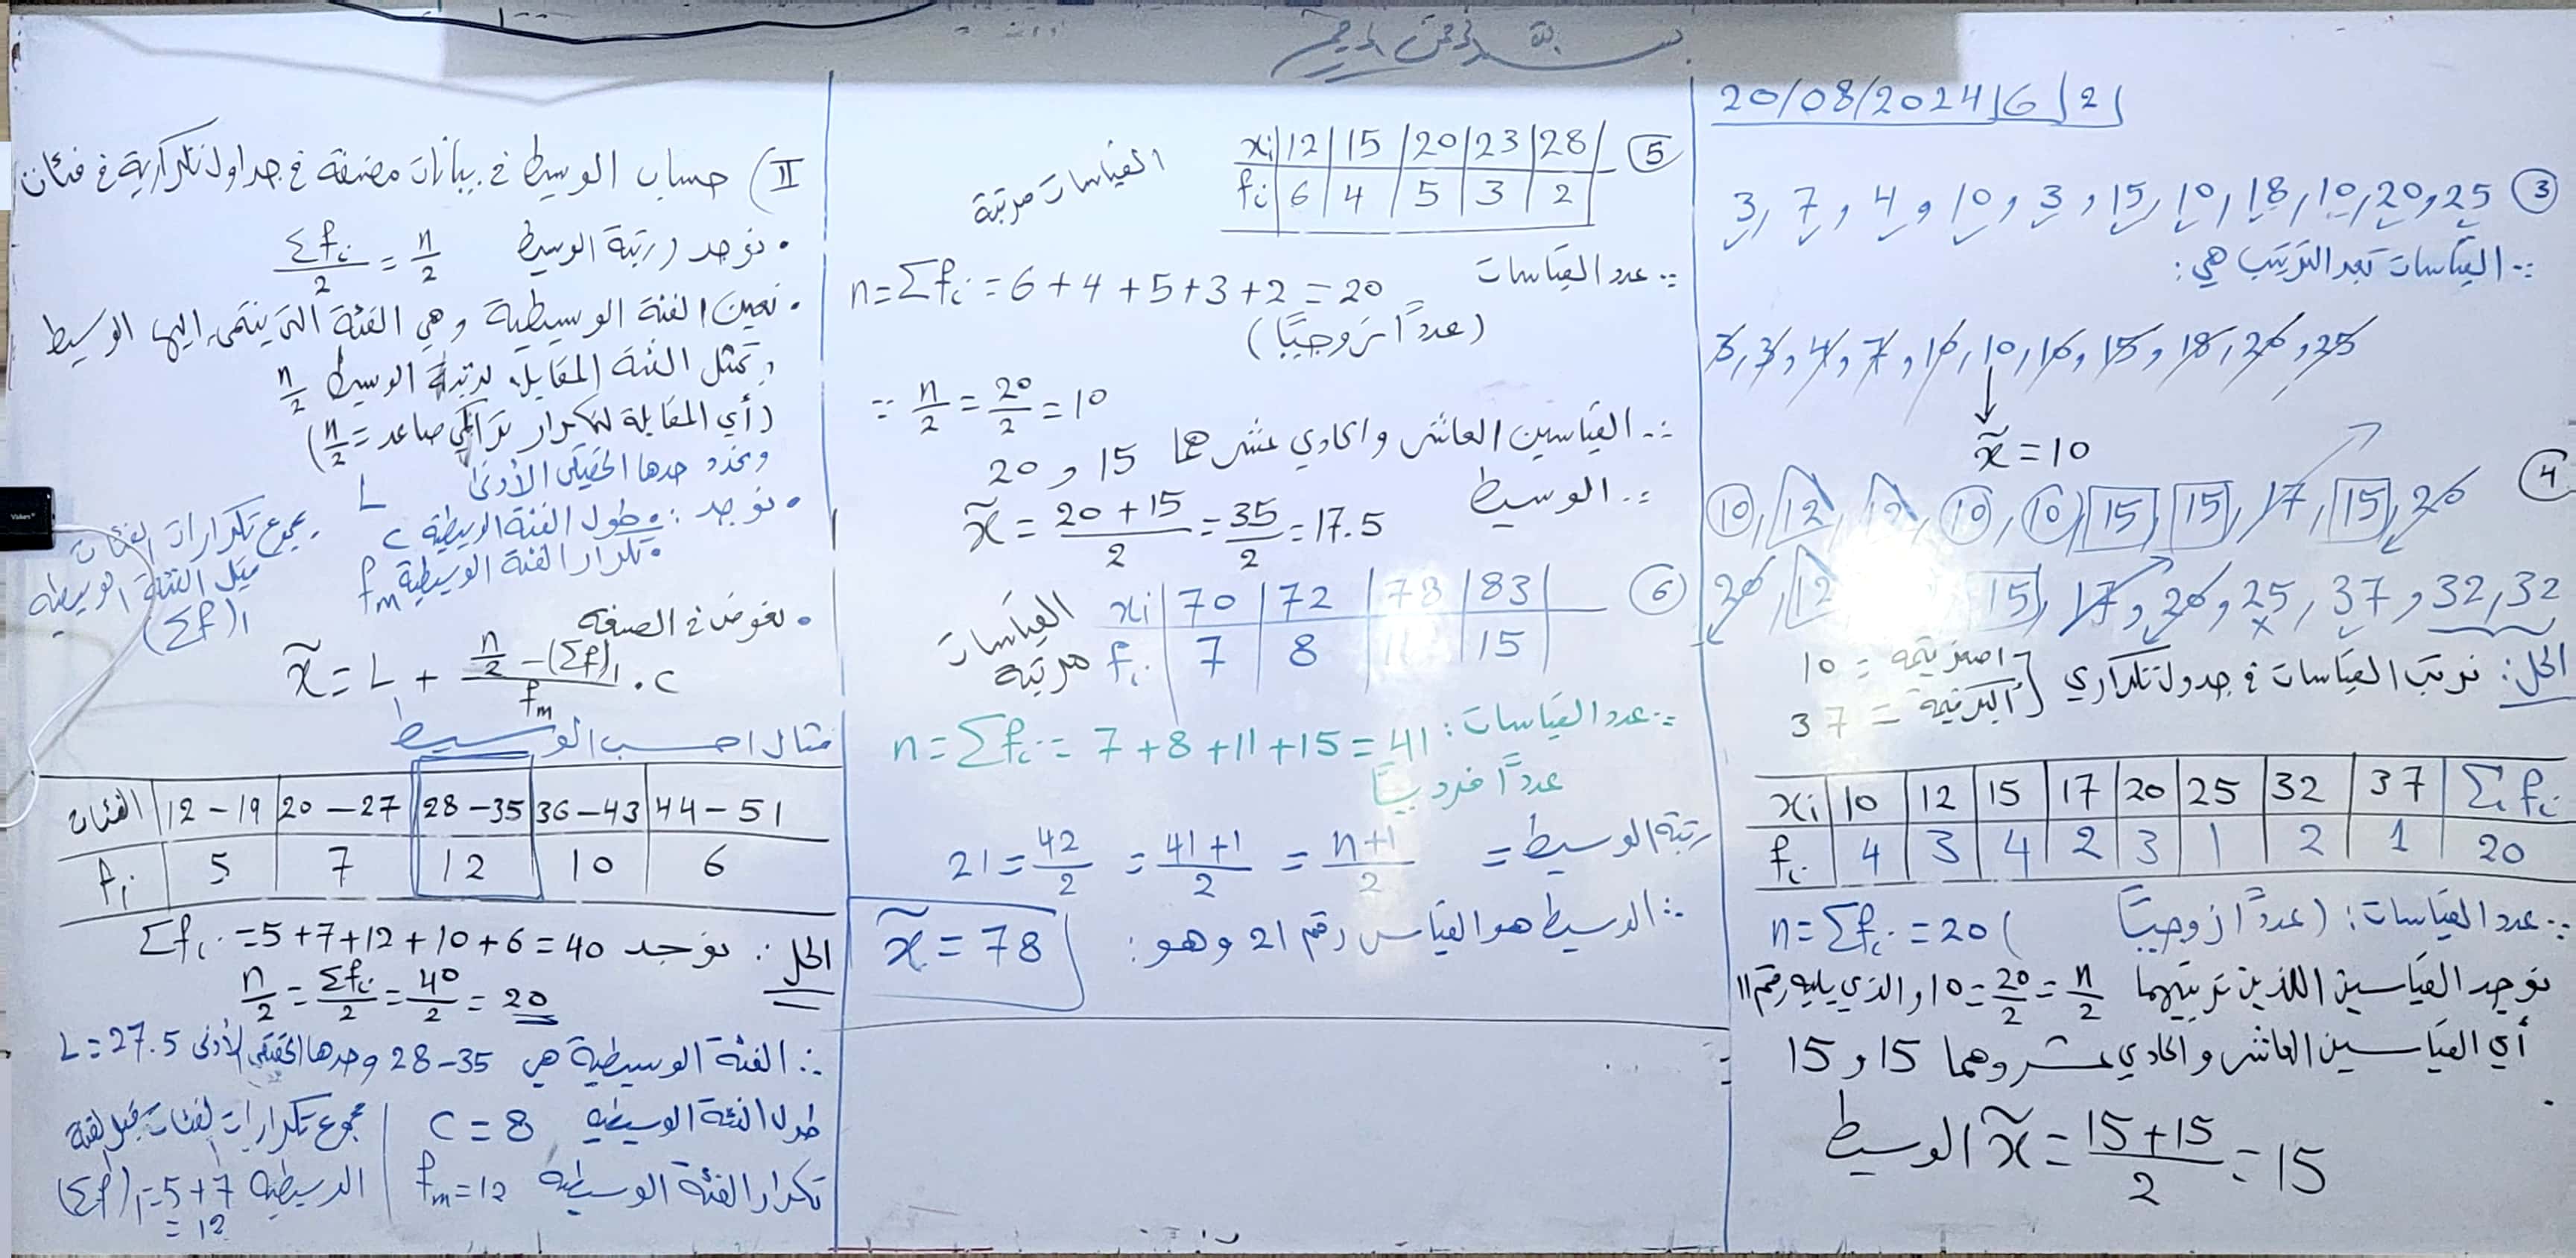 بسم الله الرحمن الرحيم
20/08/2024 | 6 | 2
③ 3, 7, 4, 10, 3, 15, 10, 18, 10, 20, 25
∴ القياسات بعد الترتيب هي:
3, 3, 4, 7, 10, 10, 10, 15, 18, 20, 25
x̃ = 10
④ 10, 12, 12, 10, 10, 15, 15, 17, 15, 20
20, 12, 15, 17, 20, 25, 37, 32, 32
الحل: نرتب القياسات في جدول تكراري
أصغر قيمة = 10
أكبر قيمة = 37
xi | 10 | 12 | 15 | 17 | 20 | 25 | 32 | 37 | Σfi
fi | 4 | 3 | 4 | 2 | 3 | 1 | 2 | 1 | 20
∴ عدد القياسات: (عدداً زوجيًا) n = Σfi = 20
نوجد القياسين اللذين ترتيبهما n/2 = 20/2 = 10 والذي يليه رقم 11
أي القياسين العاشر والحادي عشر وهما 15 و 15
الوسيط x̃ = (15+15)/2 = 15
⑤ xi | 12 | 15 | 20 | 23 | 28
fi | 6 | 4 | 5 | 3 | 2
القياسات مرتبة
∴ عدد القياسات n = Σfi = 6 + 4 + 5 + 3 + 2 = 20
(عدداً زوجيًا)
∵ n/2 = 20/2 = 10
∴ القياسين العاشر والحادي عشر هما 15 و 20
∴ الوسيط x̃ = (20+15)/2 = 35/2 = 17.5
⑥ xi | 70 | 72 | 78 | 83
fi | 7 | 8 | 11 | 15
القياسات مرتبة
∵ عدد القياسات: n = Σfi = 7 + 8 + 11 + 15 = 41
عدداً فرديًا
رتبة الوسيط = (n+1)/2 = (41+1)/2 = 42/2 = 21
∴ الوسيط هو القياس رقم 21 وهو: x̃ = 78
II) حساب الوسيط في بيانات مصنفة في جداول تكرارية في فئات
• نوجد رتبة الوسيط n/2 = Σfi/2
• نعين الفئة الوسيطية وهي الفئة التي ينتمي إليها الوسيط
وتمثل الفئة المقابلة لرتبة الوسيط n/2
(أي المقابلة لتكرار تراكمي صاعد = n/2)
ونحدد حدها الحقيقي الأدنى L
• نوجد: • طول الفئة الوسيطية c
• تكرار الفئة الوسيطية fm
• مجموع تكرارات الفئات
قبل الفئة الوسيطية
(Σf)₁
• نعوض في الصيغة
x̃ = L + (n/2 - (Σf)₁)/fm . c
مثال احسب الوسيط
الفئات | 12 - 19 | 20 - 27 | 28 - 35 | 36 - 43 | 44 - 51
fi | 5 | 7 | 12 | 10 | 6
الحل: نوجد Σfi = 5 + 7 + 12 + 10 + 6 = 40
n/2 = Σfi/2 = 40/2 = 20
∴ الفئة الوسيطية هي 28 - 35 وحدها الحقيقي الأدنى L = 27.5
طول الفئة الوسيطية c = 8
تكرار الفئة الوسيطية fm = 12
مجموع تكرارات الفئات قبل الفئة
الوسيطية (Σf)₁ = 5 + 7
= 12